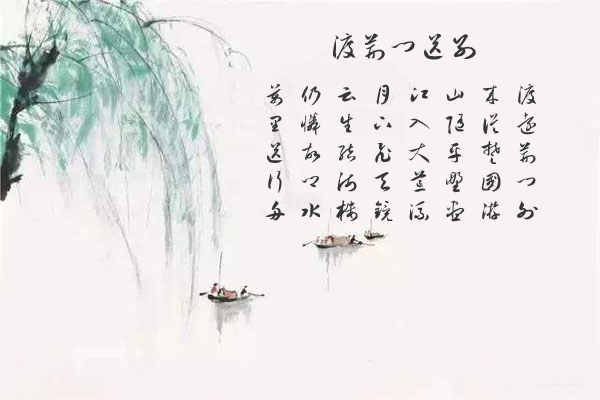 渡荆门送别
渡远荆门外
来从楚国游
山随平野尽
江入大荒流
月下飞天镜
云生结海楼
仍怜故乡水
万里送行舟